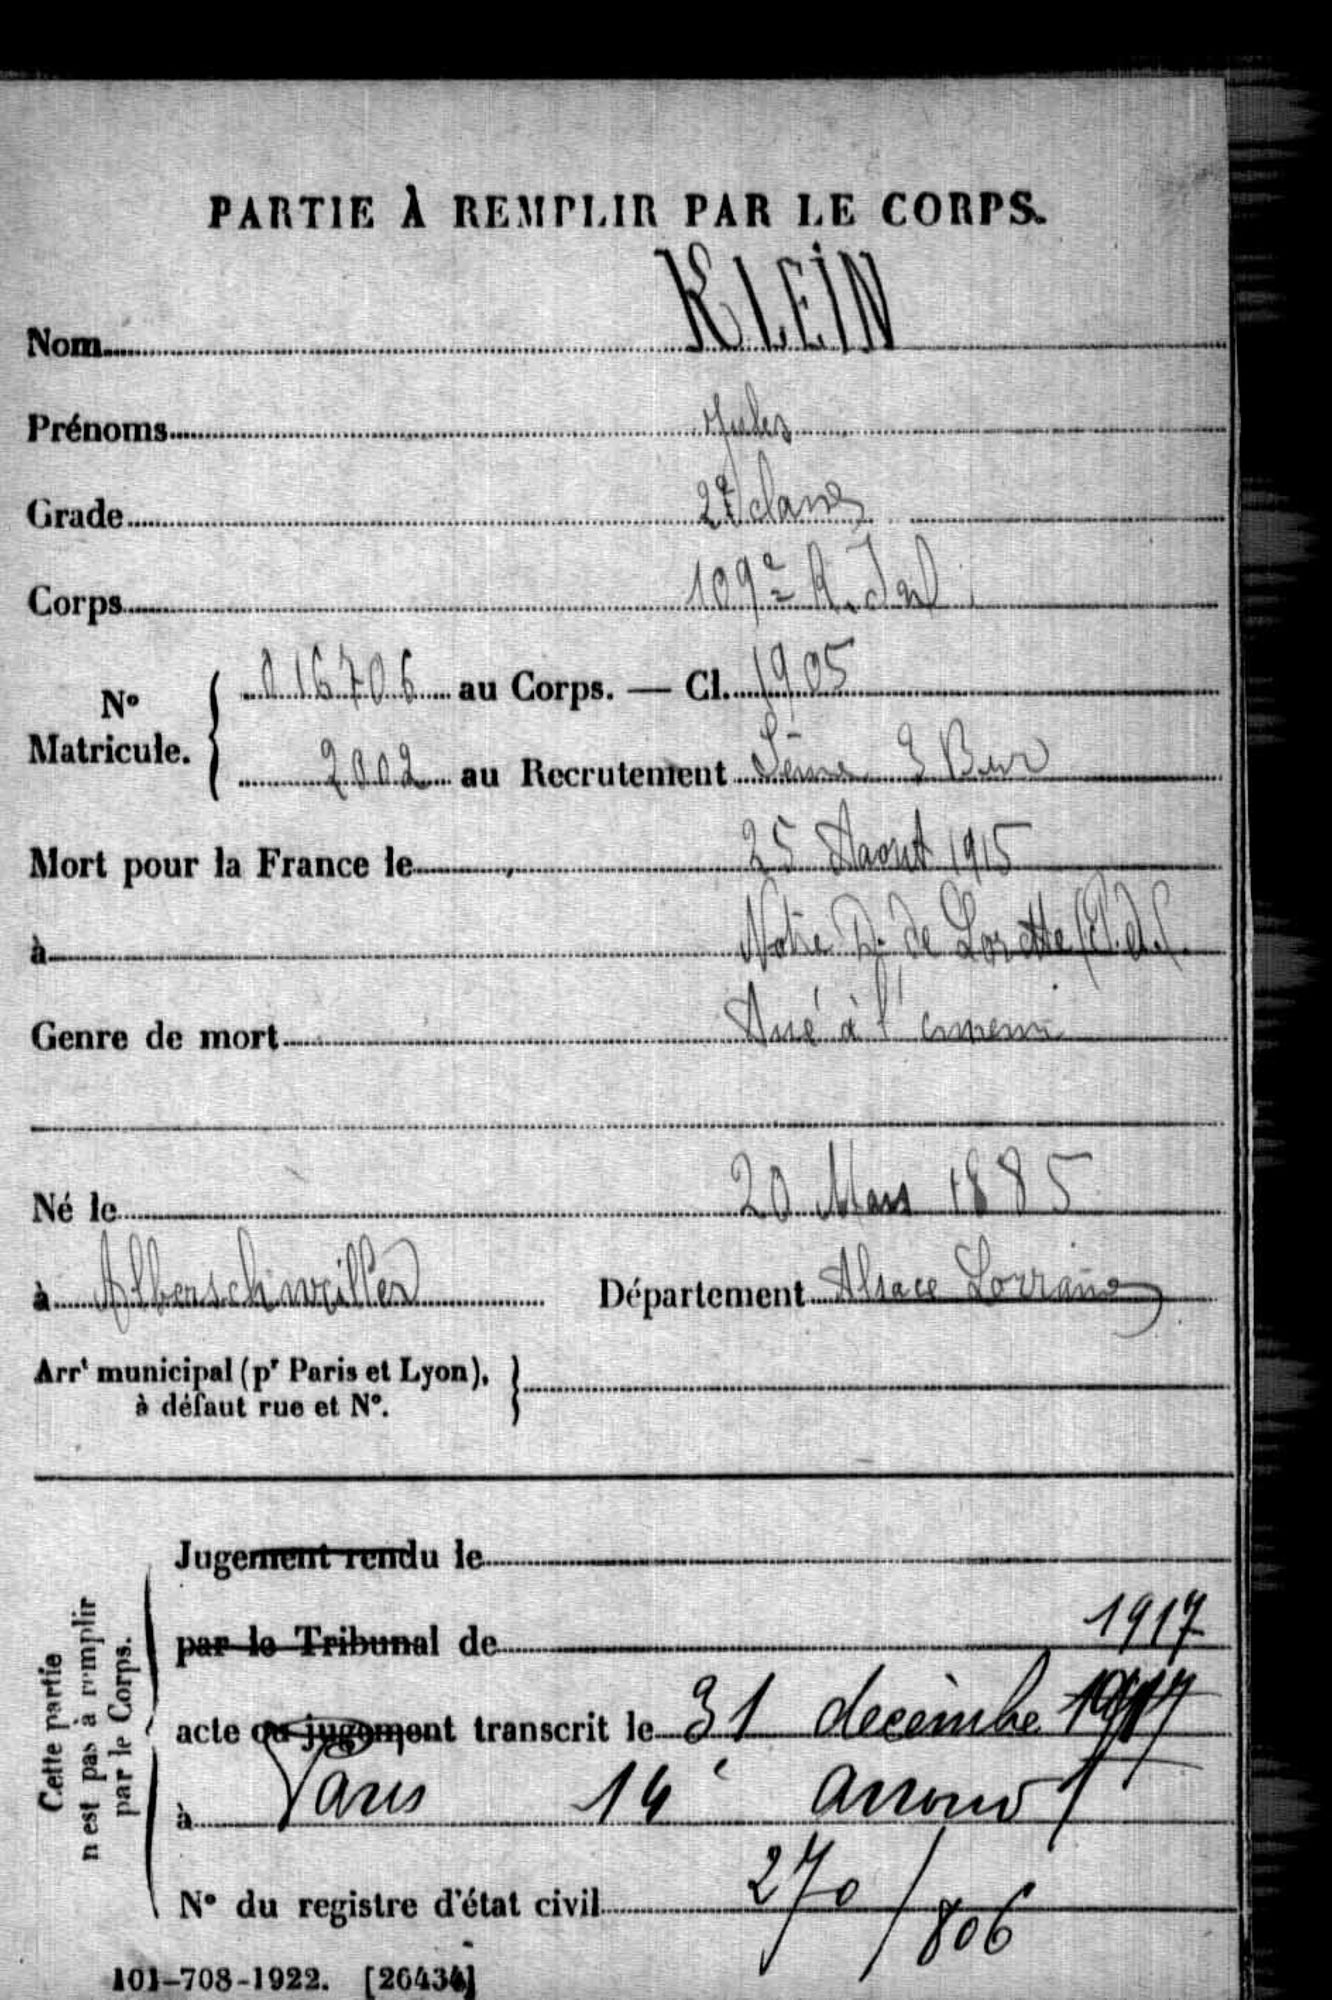 PARTIE À REMPLIR PAR LE CORPS.
Nom KLEIN
Prénoms Jules
Grade 2e classe
Corps 109e R. Inf
No Matricule. 016706 au Corps. — Cl. 1905
2002 au Recrutement Seine 3 Bur
Mort pour la France le 25 Aaout 1915
à Notre D. de Lorette (P.d.C.
Genre de mort Tué à l'ennemi
Né le 20 Mars 1885
à Alberschweiller Département Alsace Lorraine
Arrt municipal (pr Paris et Lyon),
à défaut rue et No.
Cette partie
n'est pas à remplir
par le Corps.
Jugement rendu le
par le Tribunal de 1917
acte ou jugement transcrit le 31 decembre 1917
à Paris 14e arrondt
No du registre d'état civil 270/806
101-708-1922. [26434]